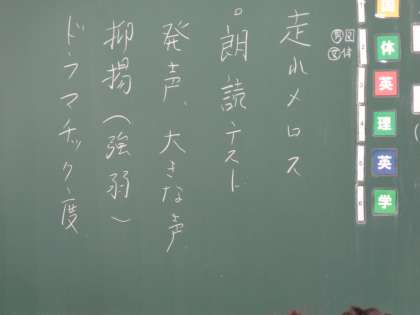 走れメロス
・朗読テスト
発声、大きな声
抑揚（強弱）
ドラマチック度
体
英
理
英
学